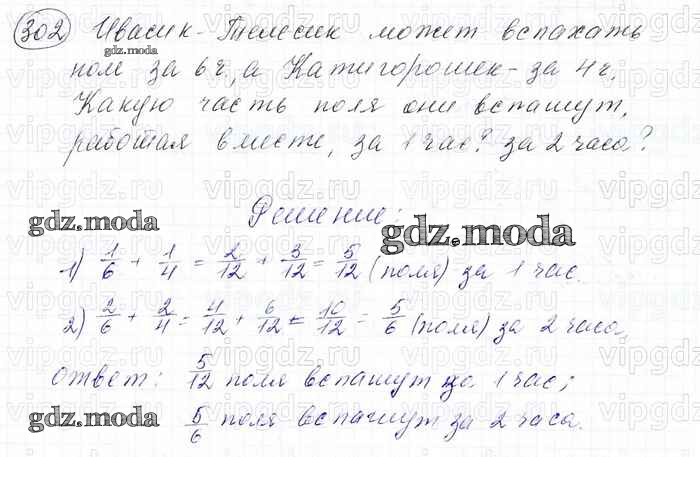 302 Ивасик-Телесик может вспахать
поле за 6ч, а Катигорошек - за 4ч.
Какую часть поля они вспашут,
работая вместе, за 1 час? за 2 часа?
Решение:
gdz.moda
gdz.moda
1) 1/6 + 1/4 = 2/12 + 3/12 = 5/12 (поля) за 1 час.
2) 2/6 + 2/4 = 4/12 + 6/12 = 10/12 = 5/6 (поля) за 2 часа,
ответ: 5/12 поля вспашут за 1 час;
gdz.moda
5/6 поля вспашут за 2 часа.
vipgdz.ru